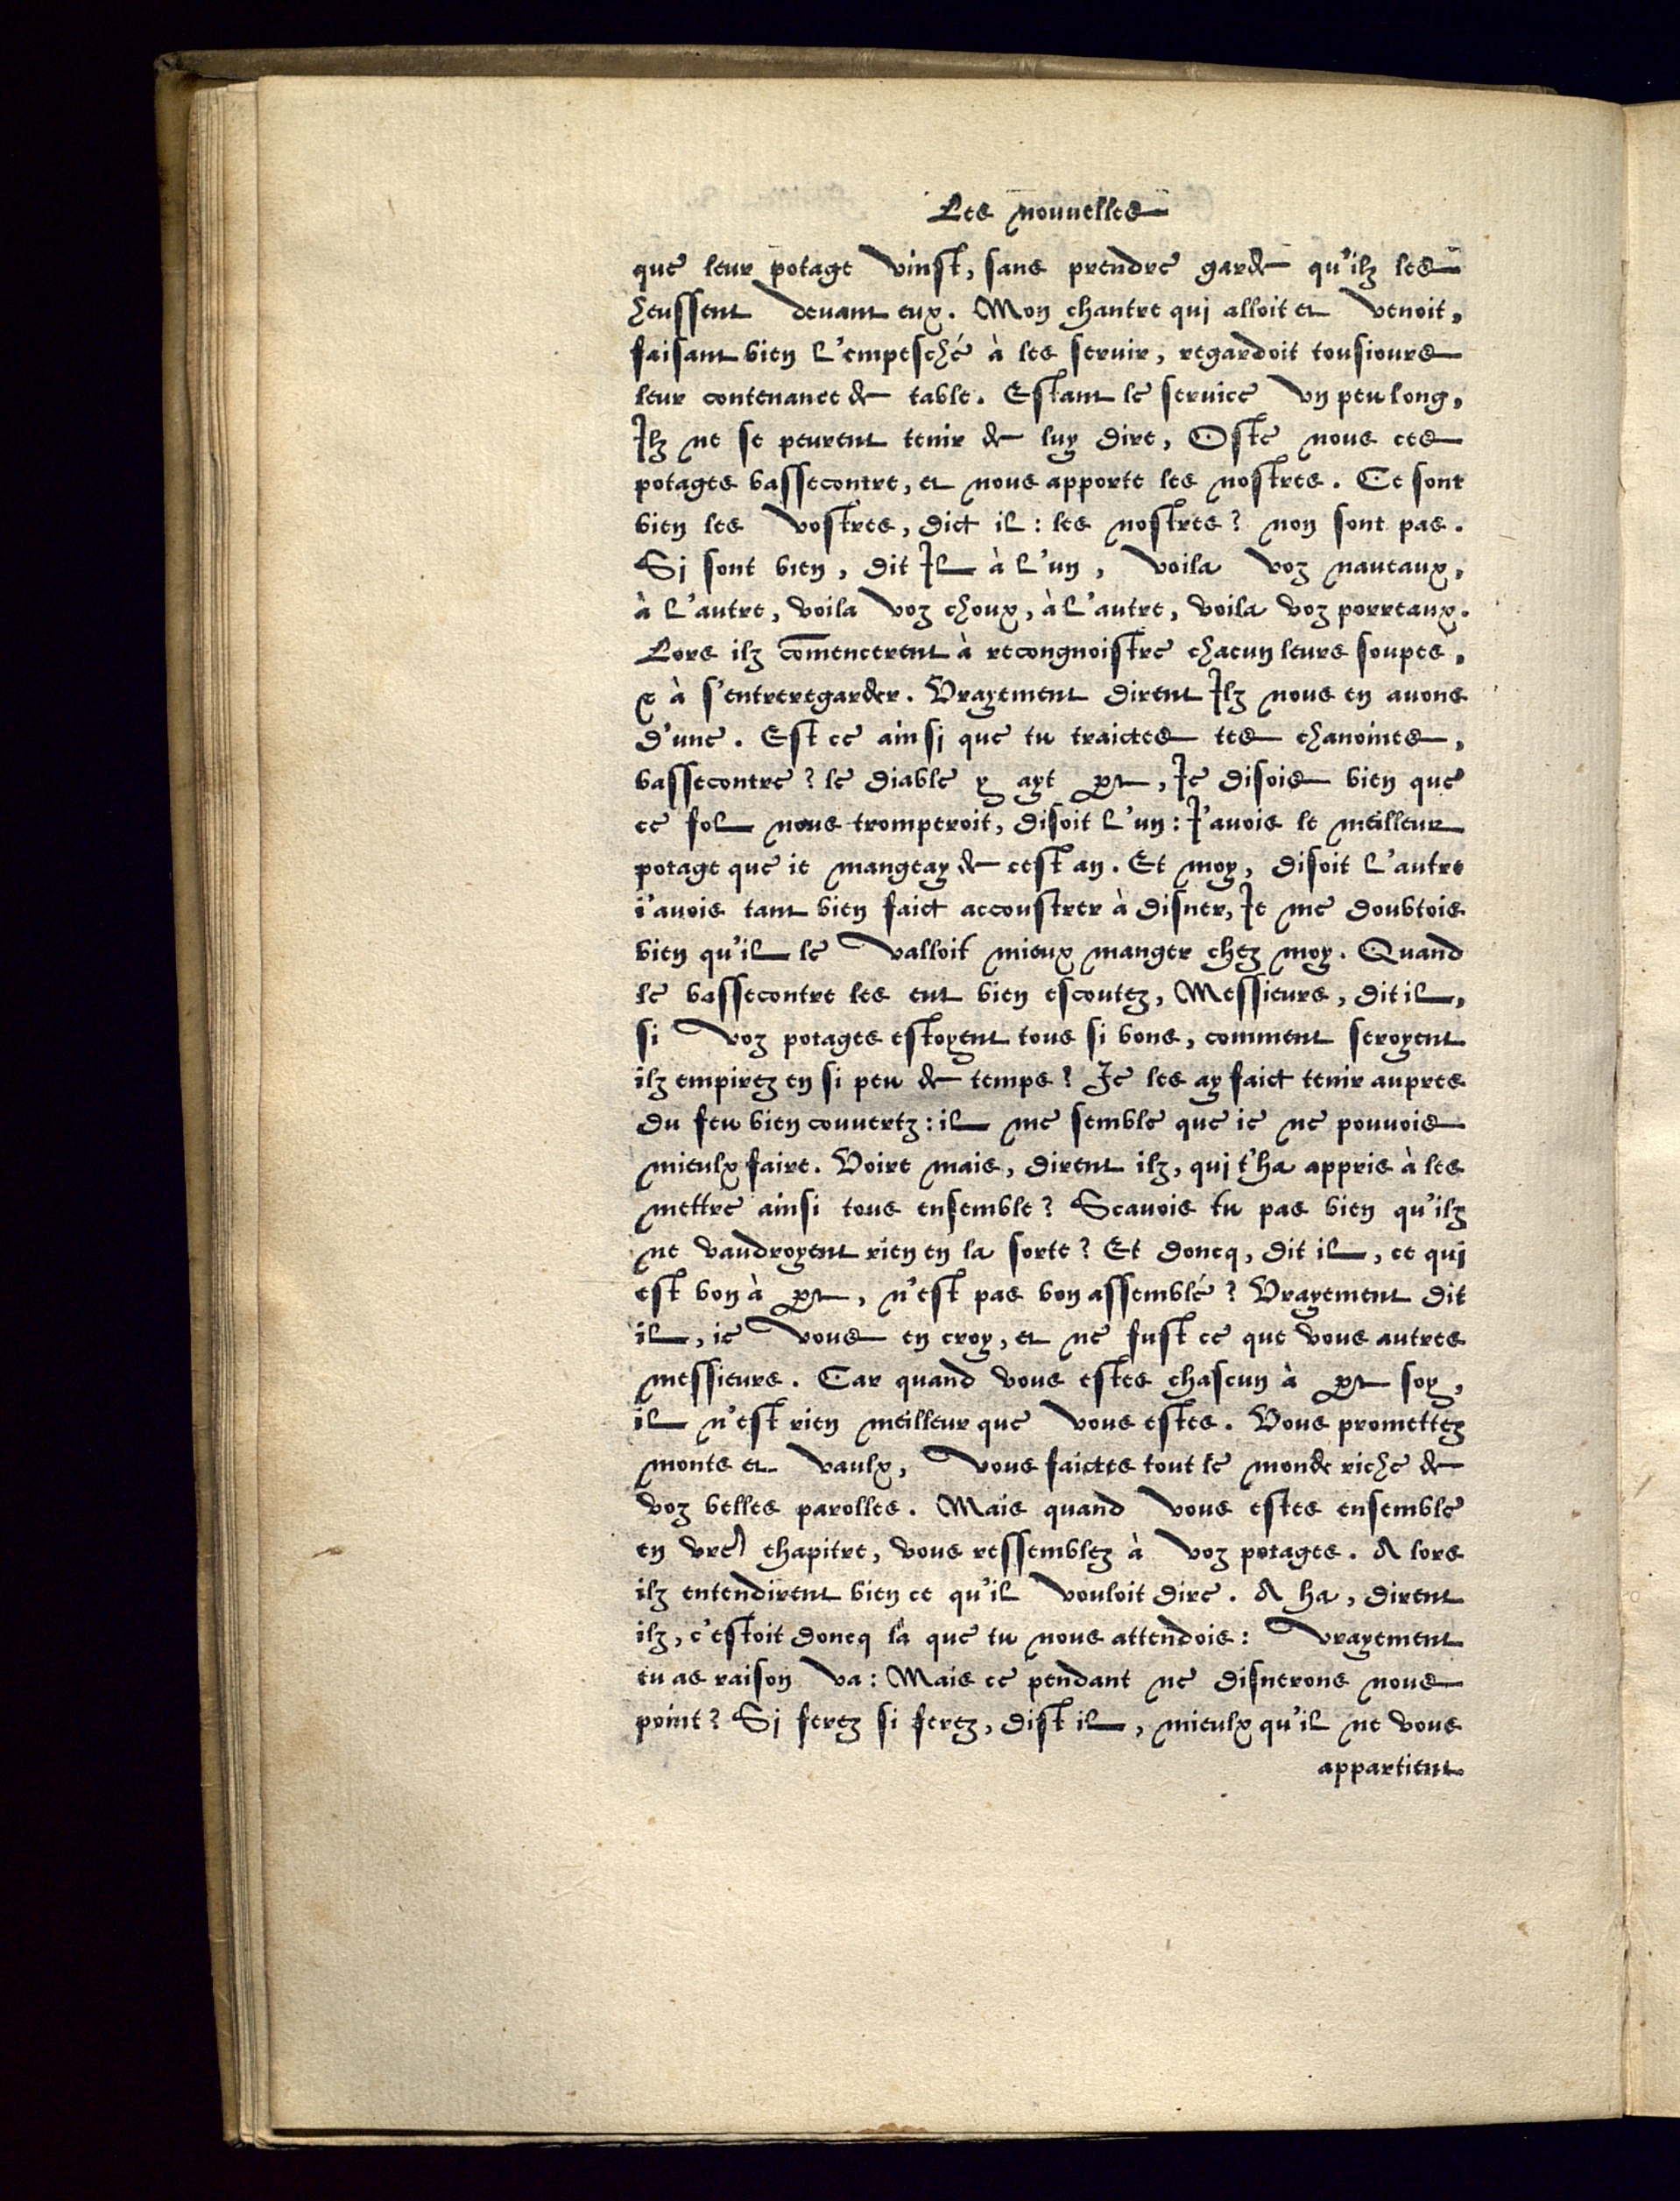 Les nouvelles
que leur potage vinst, sans prendre garde qu'ilz les
heussent devant eux. Mon chantre qui alloit et venoit,
faisant bien l'empesché à les servir, regardoit tousiours
leur contenance de table. Estant le service un peu long,
Ilz ne se peurent tenir de luy dire, Oste nous ces
potages bassecontre, et nous apporte les nostres. Ce sont
bien les vostres, dict il: les nostres? non sont pas.
Si sont bien, dit Il à l'un, voila voz naveaux,
à l'autre, voila voz choux, à l'autre, voila voz porreaux.
Lors ilz com̄encerent à recongnoistre chacun leurs soupes,
& à s'entreregarder. Vrayement dirent Ilz nous en avons
d'une. Est ce ainsi que tu traictes tes chanoines,
bassecontre? le diable y ayt part, Ie disois bien que
ce fol nous tromperoit, disoit l'un: I'avois le meilleur
potage que ie mangeay de cest an. Et moy, disoit l'autre
i'avois tant bien faict accoustrer à disner, Ie me doubtois
bien qu'il le valloit mieux manger chez moy. Quand
le bassecontre les eut bien escoutez, Messieurs, dit il,
si voz potages estoyent tous si bons, comment seroyent
ilz empirez en si peu de temps? Ie les ay faict tenir aupres
du feu bien couvertz: il me semble que ie ne pouvois
mieulx faire. Voire mais, dirent ilz, qui t'ha appris à les
mettre ainsi tous ensemble? Scavois tu pas bien qu'ilz
ne vaudroyent rien en la sorte? Et doncq, dit il, ce qui
est bon à part, n'est pas bon assemblé? Vrayement dit
il, ie vous en croy, et ne fust ce que vous autres
messieurs. Car quand vous estes chascun à part soy,
il n'est rien meilleur que vous estes. Vous promettez
monts et vaulx, vous faictes tout le monde riche de
voz belles parolles. Mais quand vous estes ensemble
en vre chapitre, vous ressemblez à voz potages. A lors
ilz entendirent bien ce qu'il vouloit dire. A ha, dirent
ilz, c'estoit doncq là que tu nous attendois: vrayement
tu as raison va: Mais ce pendant ne disnerons nous
point? Si ferez si ferez, dist il, mieulx qu'il ne vous
appartient